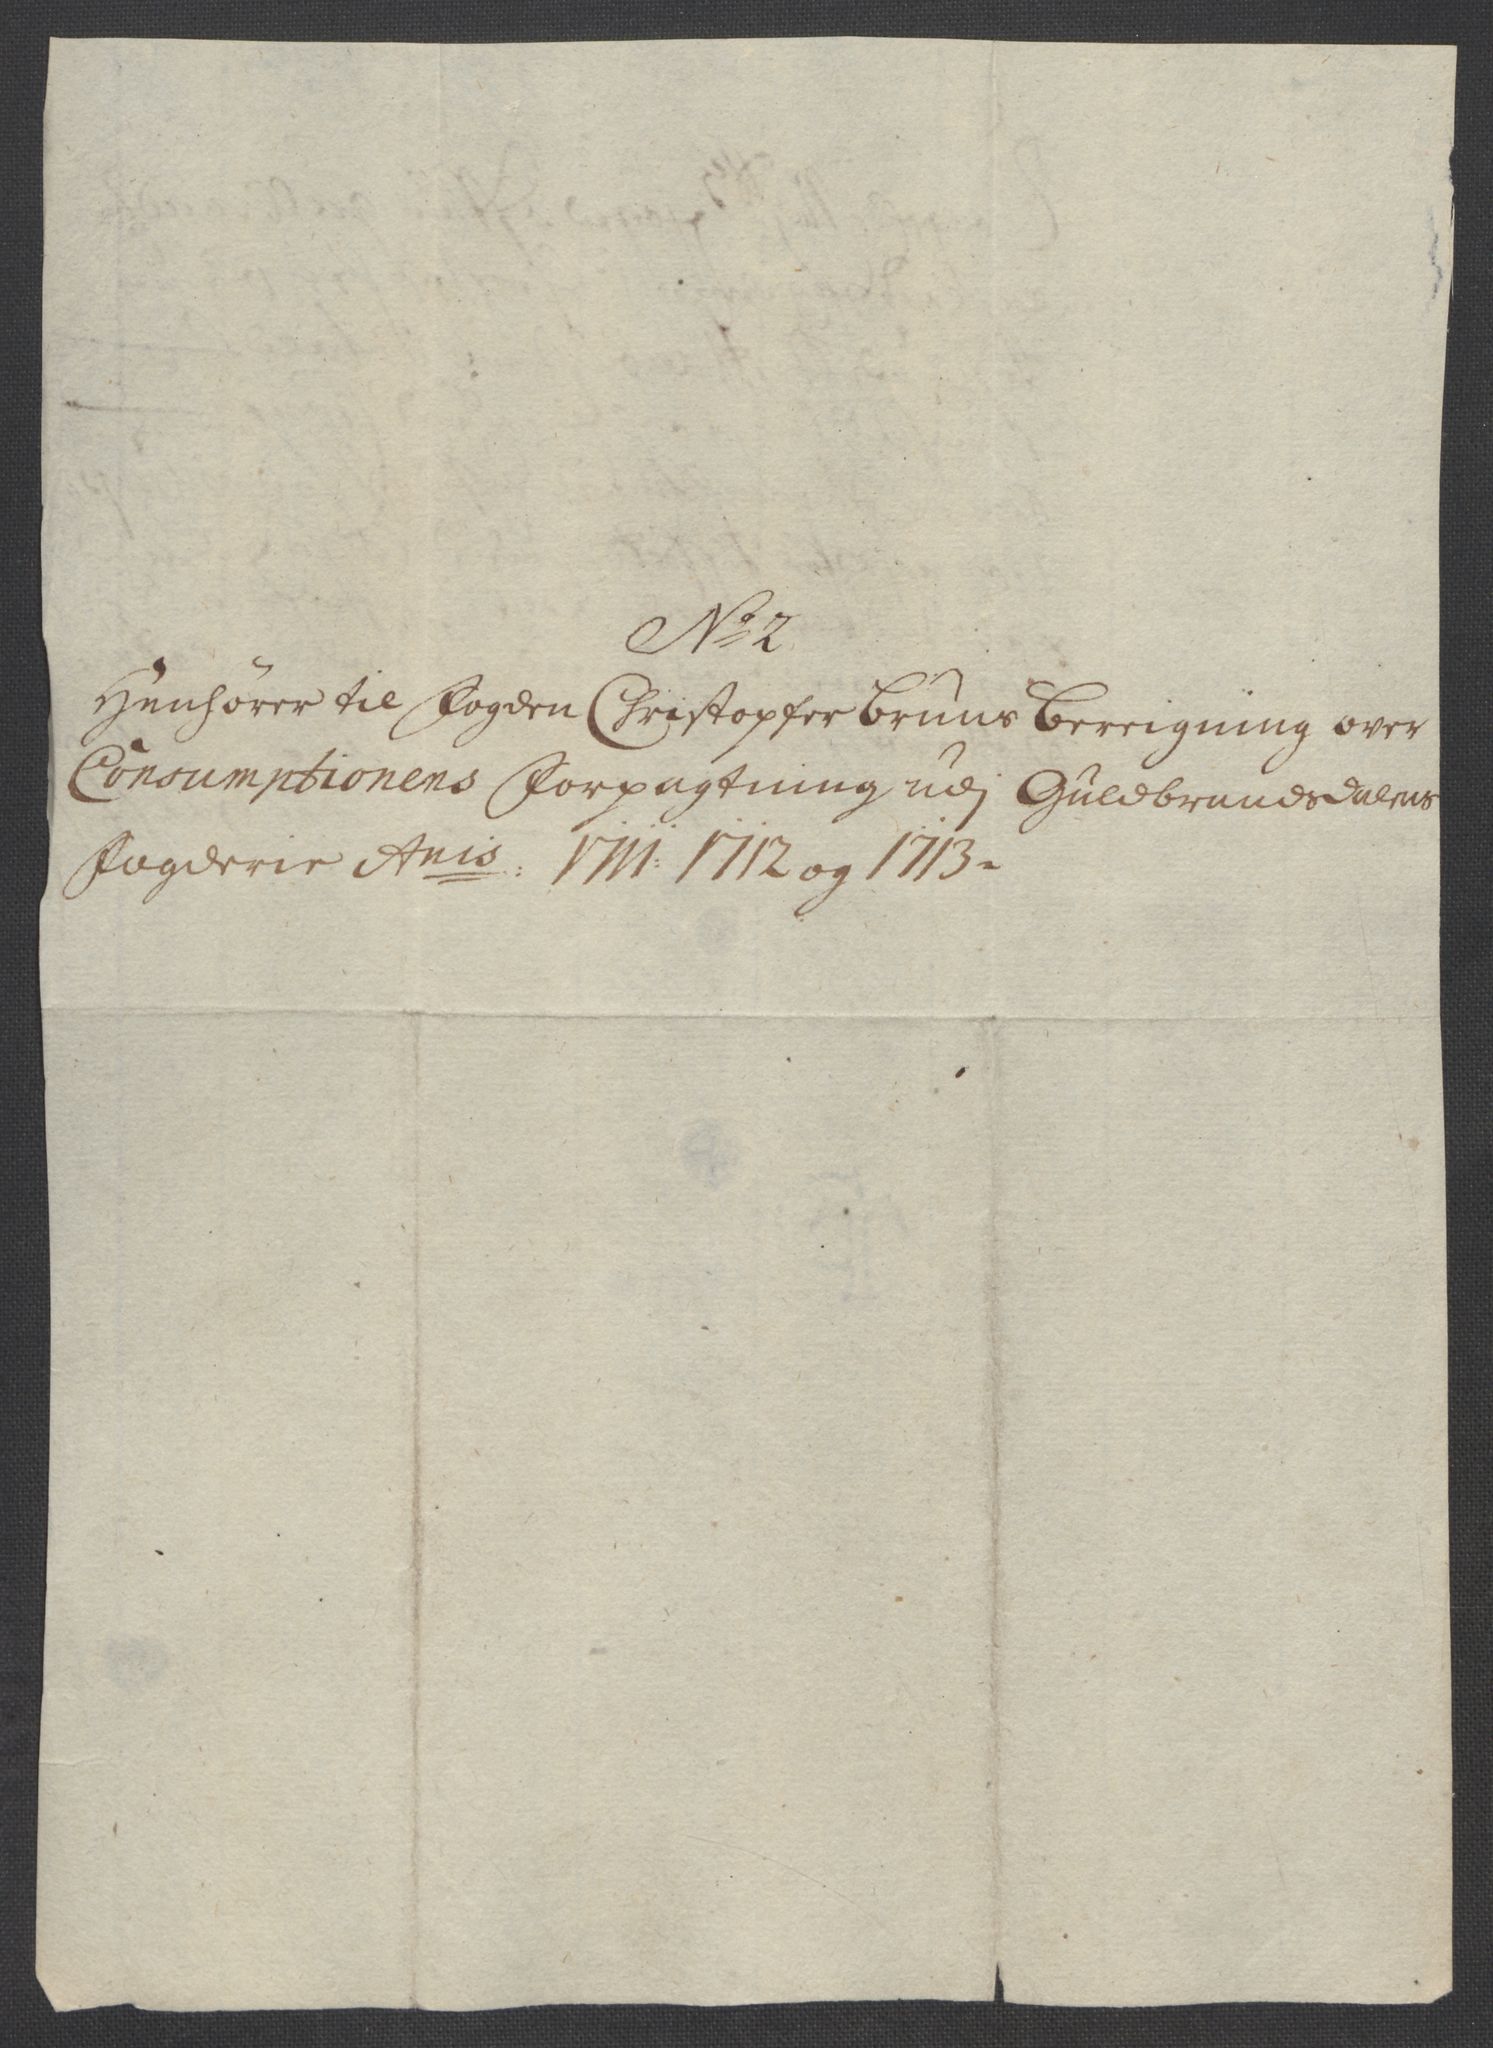 No 2
Henhører til Fogden Christopfer Bruuns Bereigning over
Consumptionens Forpagtning udj Guldbrandsdalens
Fogderie Anis: 1711: 1712 og 1713-